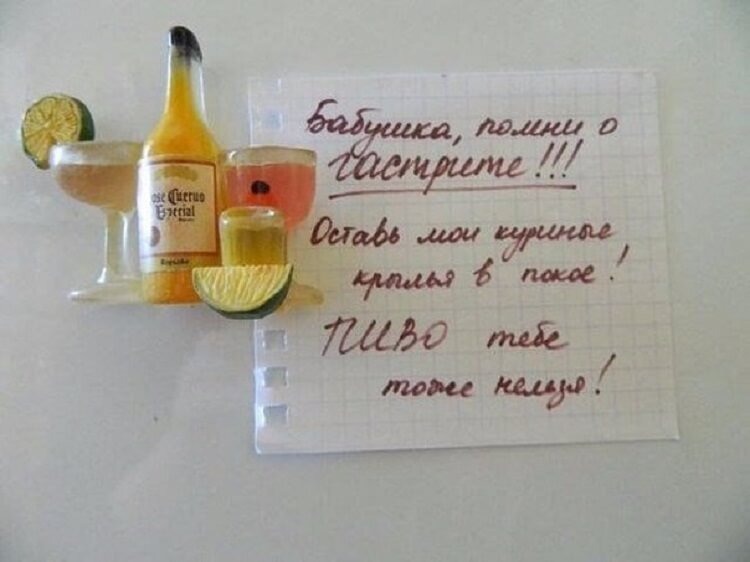 Бабушка, помни о
гастрите!!!
Оставь мои куриные
крылья в покое!
ПИВО тебе
тоже нельзя!
Jose Cuervo
Especial